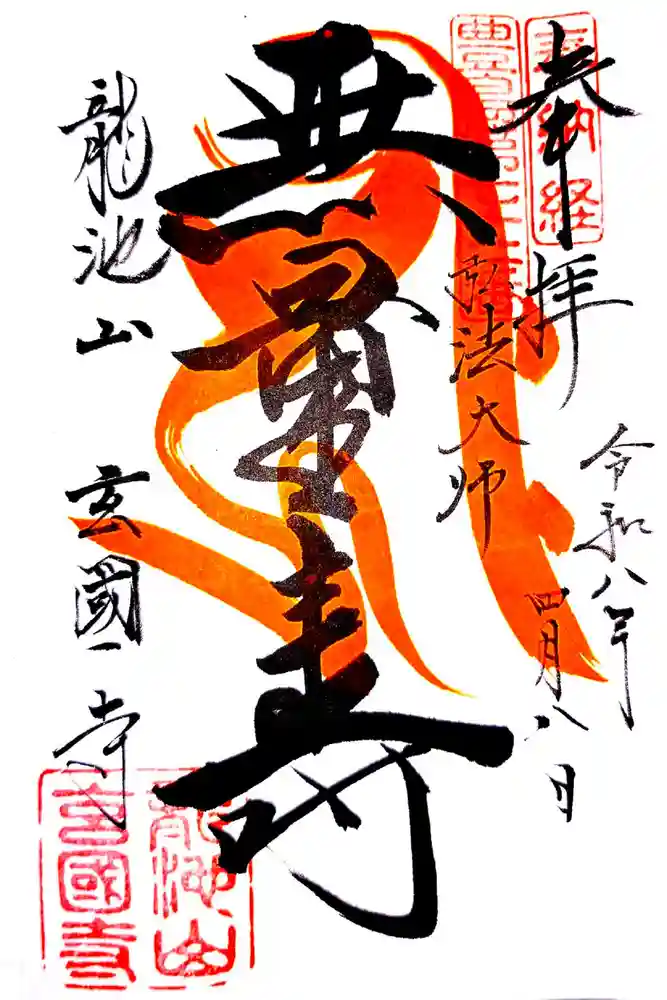 奉拝
奉納経
令和八年
四月八日
弘法大師
無量寿
龍池山
玄國寺
龍池山
玄國寺